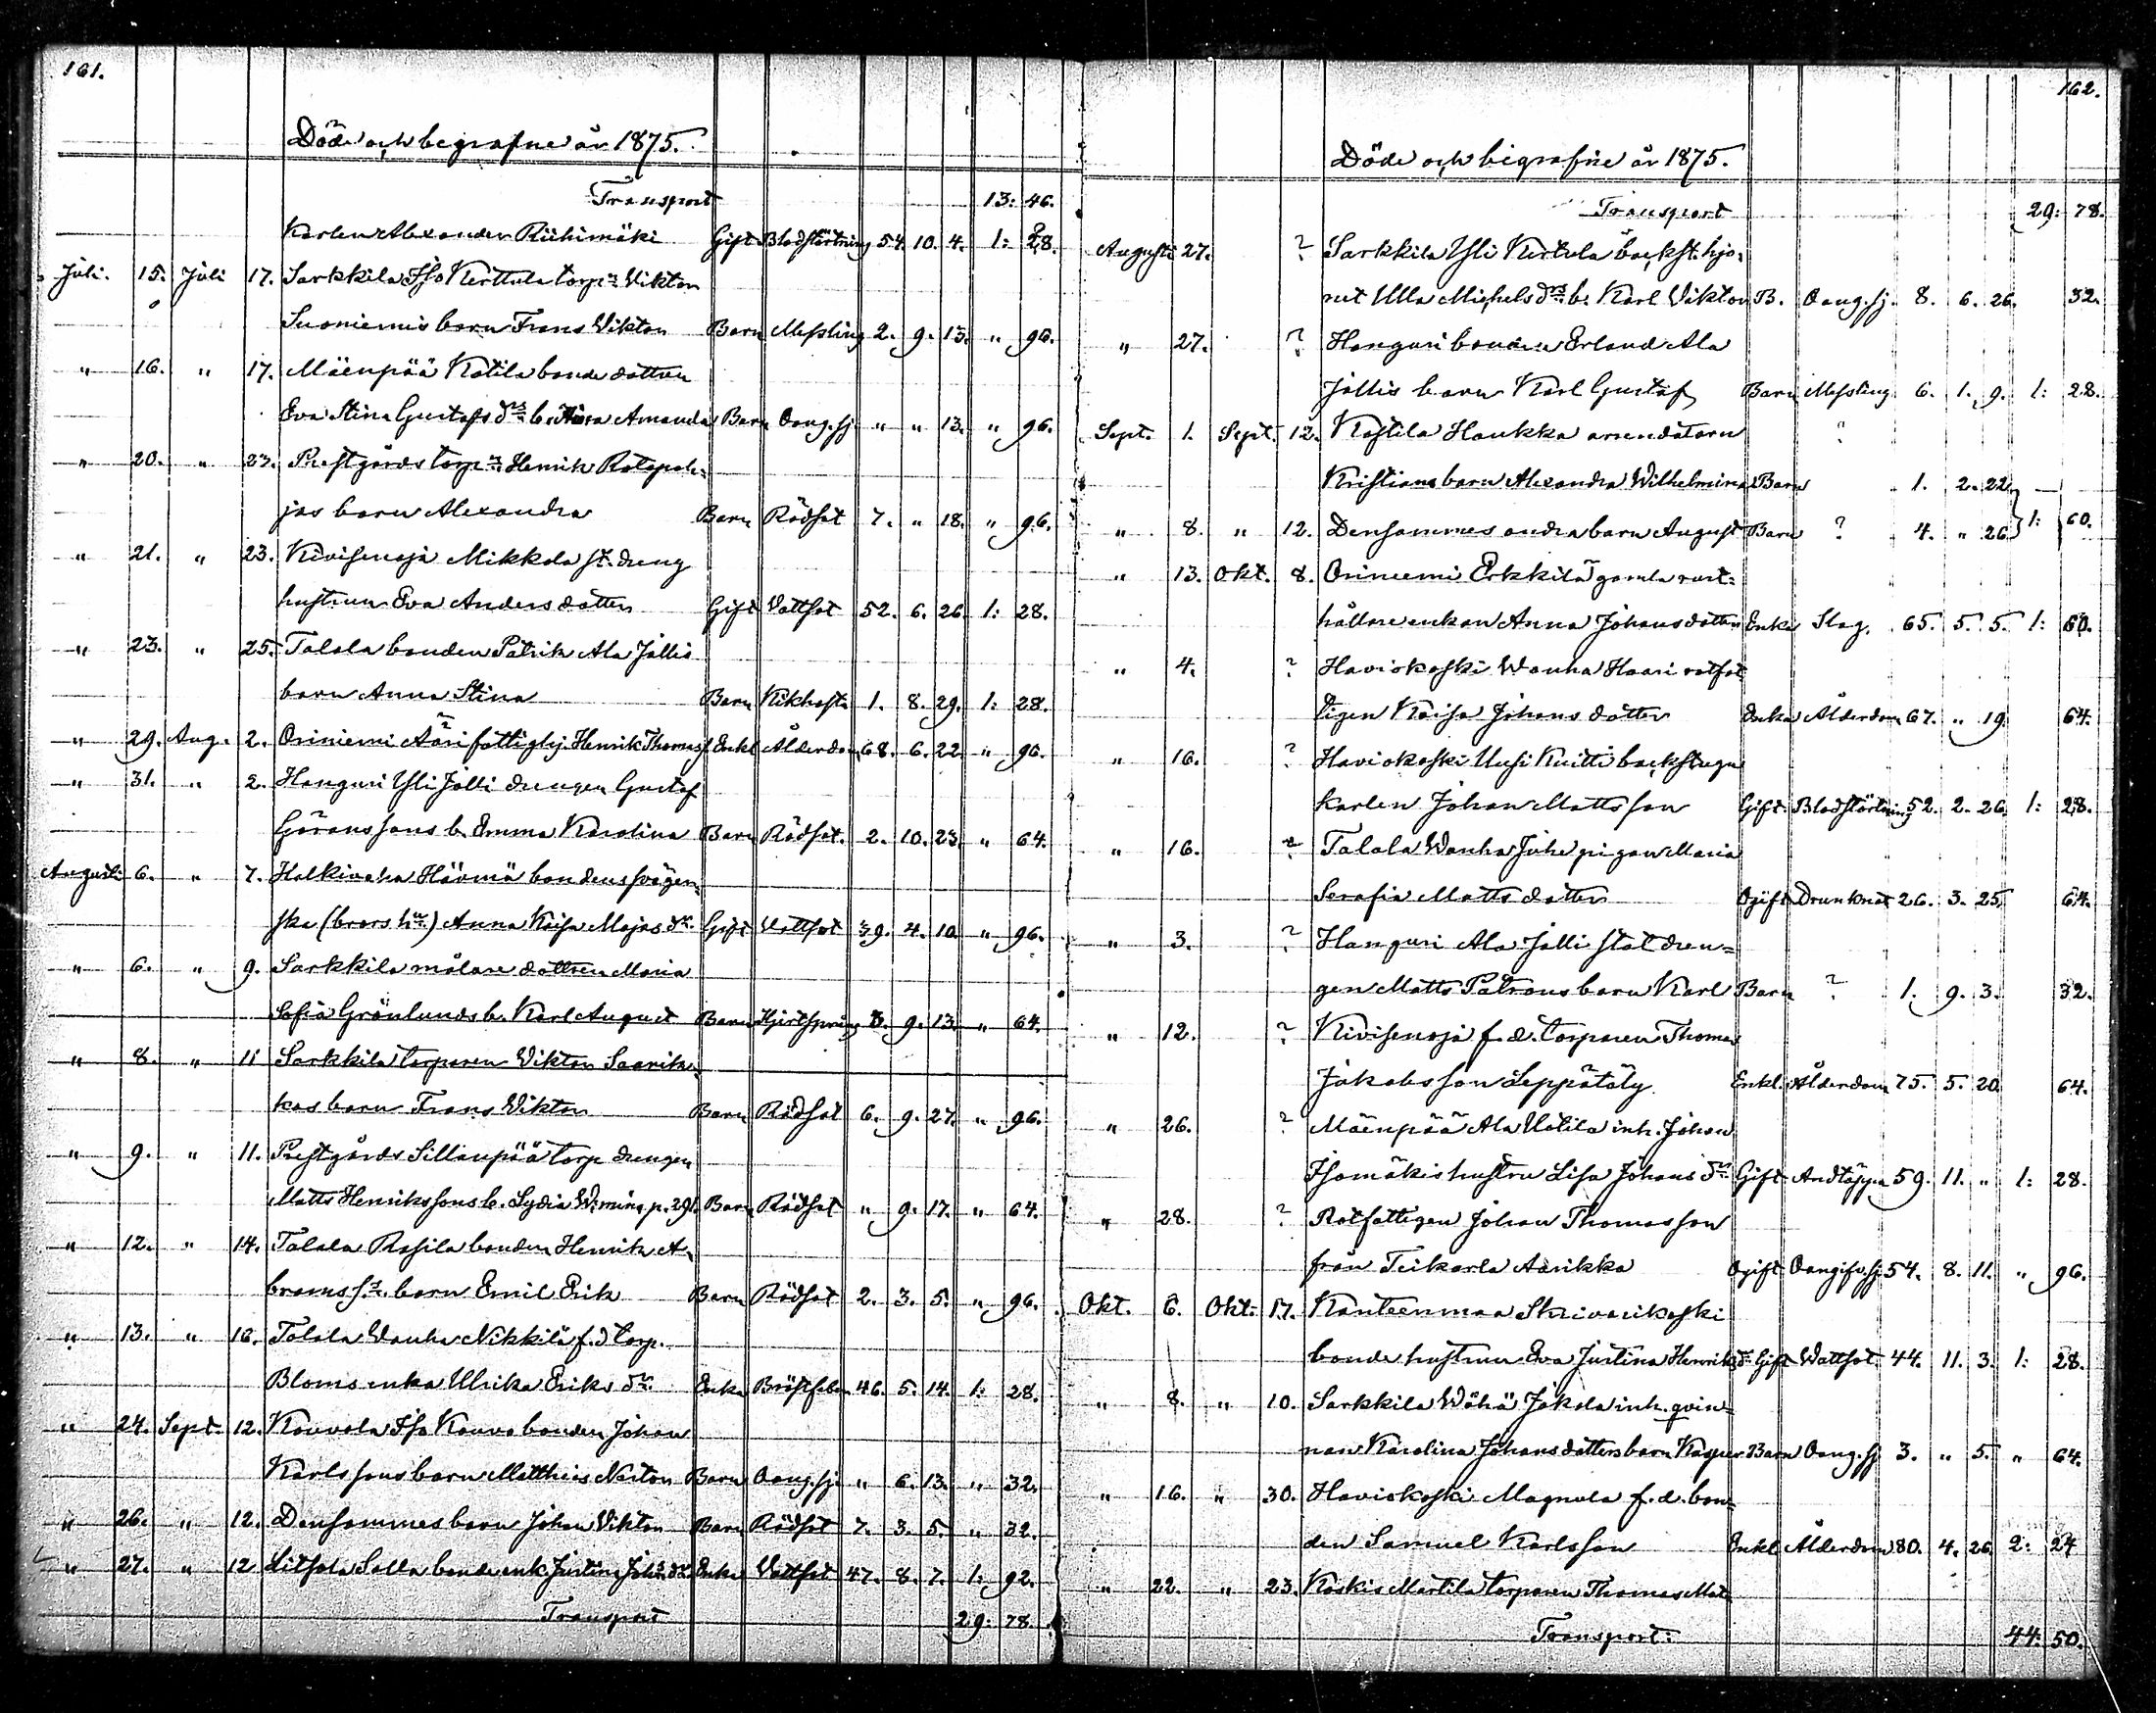 161.
Döde och begrafne år 1875.
Transport 13: 46.
Karlen Alexander Riihimäki Gift Blodstörtning 54. 10. 4. 1: 28.
Juli. 15. Juli 17. Sarkkila Iso Kerttula torp:n Viktor
Suoniemis barn Frans Viktor Barn Messling 2. 9. 13. " 96.
" 16. " 17. Mäenpää Kotila bonde dottren
Eva Stina Gustafs d:rs b. Amanda Barn Oang. sj. " " 13. " 96.
" 20. " 23. Prestgårds torp:n Henrik Rotepoh=
jas barn Alexandra Barn Rödsot 7. " 18. " 96.
" 21. " 23. Kivisenoja Mikkola st. dreng
hustrun Eva Anders dotter Gift Vattsot 52. 6. 26. 1: 28.
" 23. " 25. Talala bonden Patrik Ala Jallis
barn Anna Stina Barn Kikhosta 1. 8. 29. 1: 28.
" 29. Aug. 2. Oriniemi Ääri fattighj. Henrik Thomass. Enkl. Ålderdom 68. 6. 22. " 96.
" 31. " 2. Hanguri Yli Jalli drengen Gustaf
Göranssons b. Emma Karolina Barn Rödsot. 2. 10. 23. " 64.
Augusti 6. " 7. Halkivaha Hävmä bondens svägers
ska (brors h:u) Anna Kaisa Majas d:r Gift Vattsot 39. 4. 10. " 96.
" 6. " 9. Sarkkila målare dottren Maria
Sofia Grönlunds b. Karl August Barn Hjertsprång 3. 9. 13. " 64.
" 8. " 11 Sarkkila torparen Viktor Saarik
kas barn Frans Viktor Barn Rödsot 6. 9. 27. " 96.
" 9. " 11. Prestgårds Sillanpää torp drengen
Matts Henrikssons b. Lydia W:mina p. 291. Barn Rödsot " 9. 17. " 64.
" 12. " 14. Talala Rasila bonden Henrik A
brams s:ns barn Emil Erik Barn Rödsot 2. 3. 5. " 96.
" 13. " 16. Talala Wanha Nikkilä f. d torp.
Bloms enka Ulrika Eriks d:r Enka Bröstfeber 46. 5. 14. 1: 28.
" 24. Sept. 12. Kouvola Iso Kouvo bonden Johan
Karlssons barn Matthias Nestor Barn Oang. sj. " 6. 13. " 32.
" 26. " 12. Densammes barn Johan Viktor Barn Rödsot 7. 3. 5. " 32.
" 27. " 12 Litsola Salla bonde enk. Justina Johs d:r Enka Vattsot 47. 8. 7. 1: 92.
Transport 29: 78.
162.
Döde och begrafne år 1875.
Transport 29: 78.
Augusti 27. ? Sarkkila Yli Kertula backst. hjo=
net Ulla Michels d:rs b. Karl Viktor B. Oang. sj. 8. 6. 26. 32.
" 27. ? Hanguri bonden Erland Ala
Jallis barn Karl Gustaf Barn Messling 6. 1. 9. 1: 28.
Sept. 1. Sept. 12. Kostila Haukka arrendatorn
Kristians barn Alexandra Wilhelmina Barn 1. 2. 22.
" 8. " 12. Densammes andra barn August Barn ? 4. " 26. 1: 60.
" 13. Okt. 8. Oriniemi Erkkilä gamla rust=
hållare enkan Anna Johans dotter Enka Slag. 65. 5. 5. 1: 60.
" 4. ? Haviokoski Wanha Haari rotfat
tigen Kaisa Johans dotter Enka Ålderdom 67. " 19. 64.
" 16. ? Haviokoski Uusi Knitti backstugu
karlen Johan Mattsson Gift. Blodstörtning 52. 2. 26. 1: 28.
" 16. ? Talala Wanha Juhe pigan Maria
Serafia Matts dotter Ogift Drunknat 26. 3. 25. 64.
" 3. ? Hanguri Ala Jalli stat dren=
gen Matts Patrons barn Karl Barn ? 1. 9. 3. 32.
" 12. ? Kivisenoja f. d. torparen Thomas
Jakobsson Seppätäly Enkl. Ålderdom 75. 5. 20. 64.
" 26. ? Mäenpää Ala Uotila inh. Johan
Isomäkis hustru Lisa Johans d:r Gift Andtäppa 59. 11. " 1: 28.
" 28. ? Rotfattigen Johan Thomasson
från Teikarla Aarikka Ogift Oangifv. sj 54. 8. 11. " 96.
Okt. 6. Okt. 17. Kanteenmaa Skrivarikoski
bonde hustrun Eva Justina Henriks d:r Gift Wattsot 44. 11. 3. 1: 28.
" 8. " 10. Sarkkila Wähä Jakola inh. qvin=
nan Karolina Johans dotters barn Kasper Barn Oang. sj 3. " 5. " 64.
" 16. " 30. Haviokoski Magnula f. d. bon=
den Samuel Karlsson Enkl Ålderdom 80. 4. 26. 2: 24
" 22. " 23. Koskis Martila torparen Thomas Mat
Transport: 44: 50.